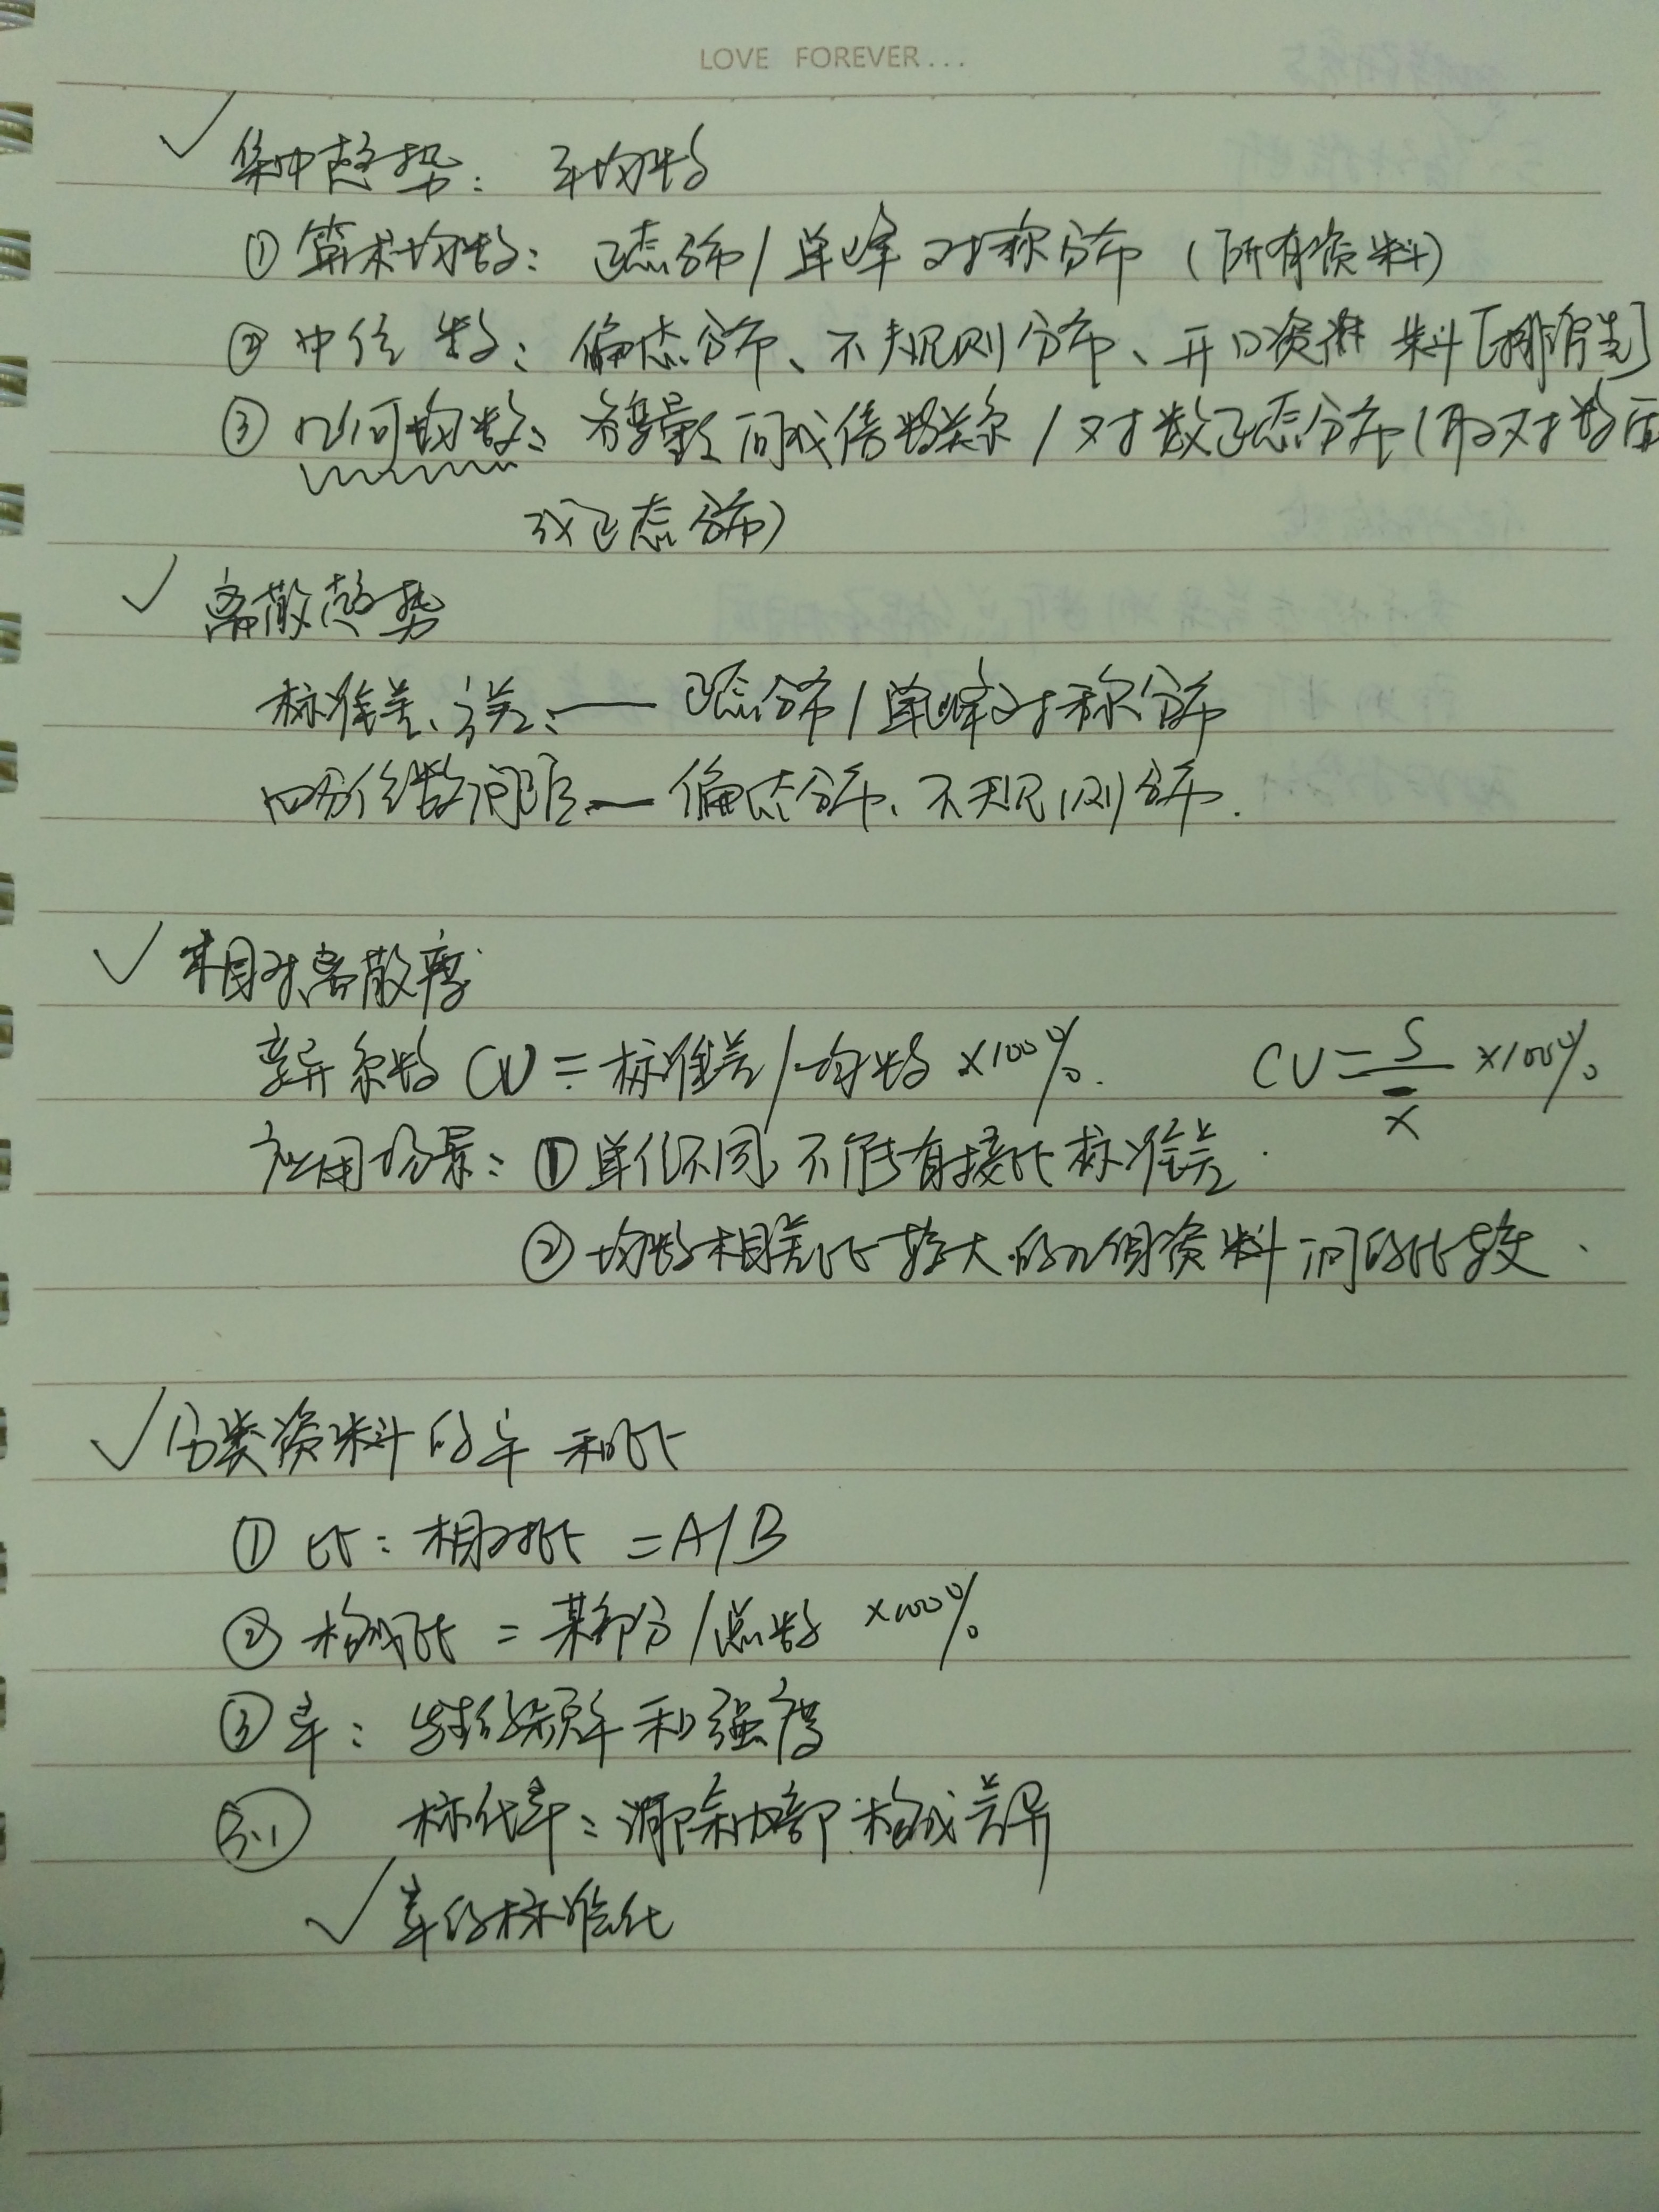 LOVE FOREVER...
✓ 集中趋势: 平均数
① 算术均数: 正态分布/单峰对称分布 (所有资料)
② 中位数: 偏态分布、不规则分布、开口资料 [排序先]
③ 几何均数: 各变量间成倍数关系/对数正态分布(取对数后
成正态分布)
✓ 离散趋势
标准差、方差 —— 正态分布/单峰对称分布
四分位数间距 — 偏态分布、不规则分布.
✓ 相对离散度
变异系数 CV = 标准差/均数 ×100%. CV = S/x̄ ×100%
应用场景: ① 单位不同,不能直接比标准差.
② 均数相差比较大的几个资料间的比较、
✓ 分类资料的率和比
① 比: 相对比 = A/B
② 构成比 = 某部分/总数 ×100%
③ 率: 频率和强度
3.1 标化率: 消除内部构成差异
✓ 率的标准化